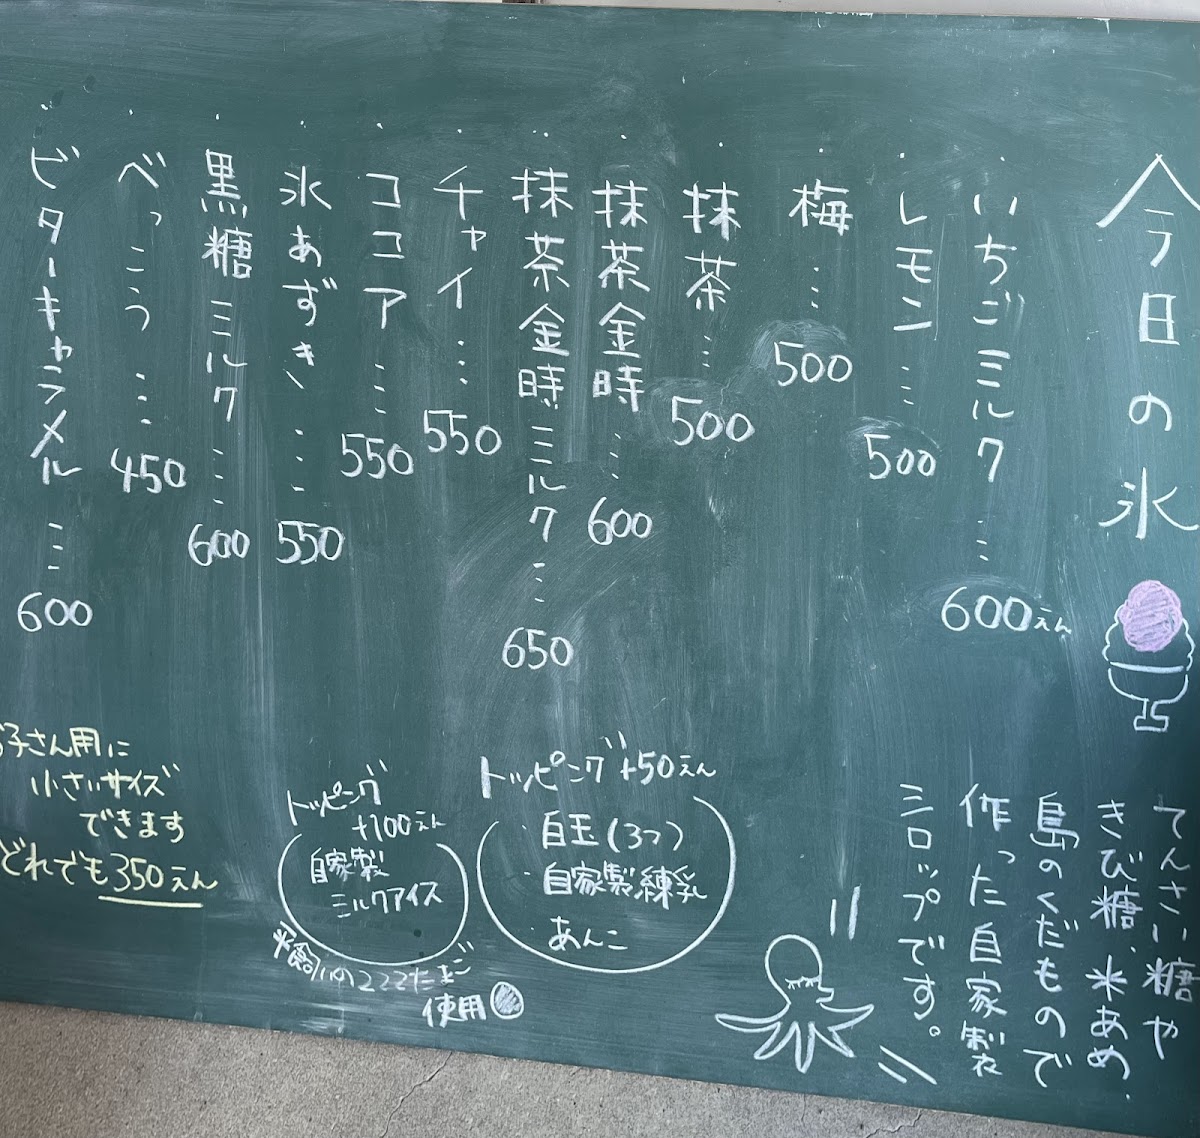 今日の氷
いちごミルク…600えん
レモン…500
梅…500
抹茶…500
抹茶金時…600
抹茶金時ミルク…650
チャイ…550
ココア…550
氷あずき…550
黒糖ミルク…600
べっこう…450
ビターキャラメル…600
てんさい糖や
きび糖、米あめ、
島のくだもので
作った自家製
シロップです。
トッピング +50えん
・白玉(3つ)
・自家製練乳
・あんこ
トッピング
+100えん
自家製
ミルクアイス
平飼いのコココたまご
使用
お子さん用に
小さいサイズ
できます
どれでも350えん